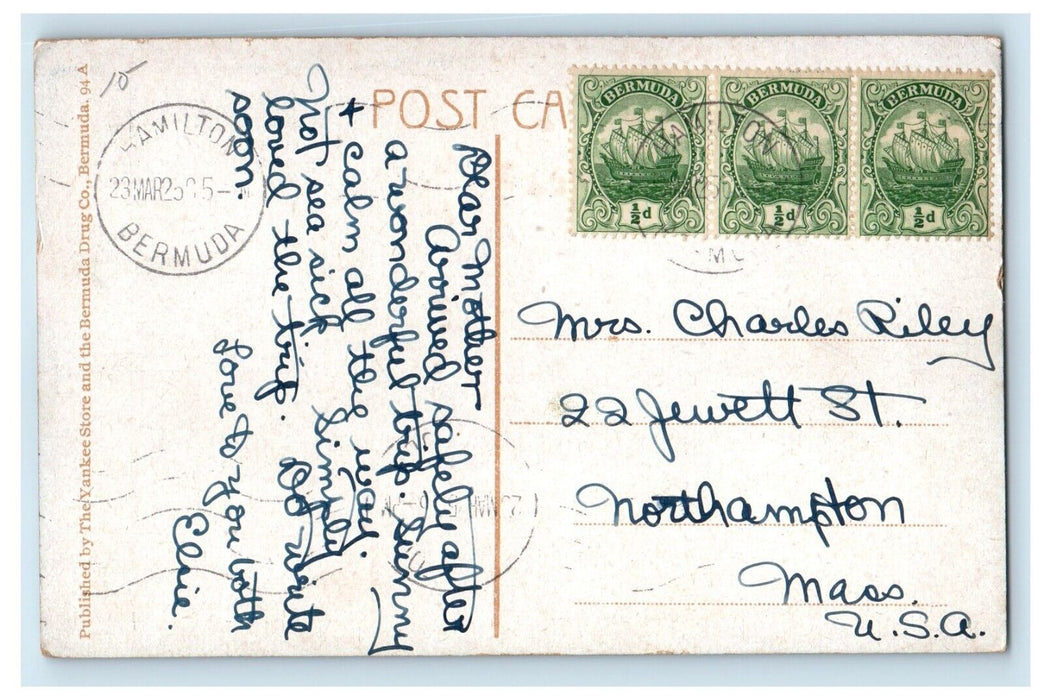 POST CA
BERMUDA
BERMUDA
BERMUDA
½d
½d
½d
HAMILTON
23MAR25
BERMUDA
10
Dear Mother
Arrived safely after
a wonderful trip. Sunny
+ calm all the way.
Not sea sick. Simply
loved the trip. Do write
soon.
Love to you both
Elsie.
Mrs. Charles Riley
22 Jewett St.
Northampton
Mass.
U.S.A.
Published by The Yankee Store and the Bermuda Drug Co., Bermuda. 94 A